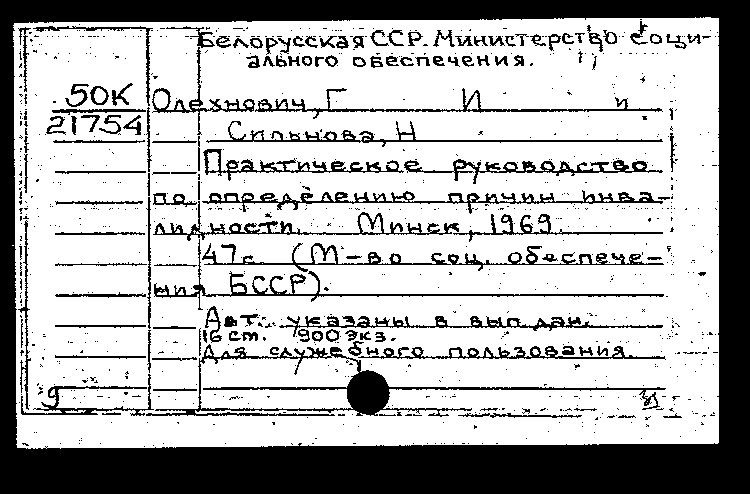 Белорусская ССР. Министерство соци-
ального обеспечения.
50К
21754
Олехнович, Г И и
Сильнова, Н
Практическое руководство
по определению причин инва-
лидности. Минск, 1969.
47с. (М-во соц. обеспече-
ния БССР).
Авт. указаны в вып. дан.
16 cm. 900 экз.
Для служебного пользования.
9